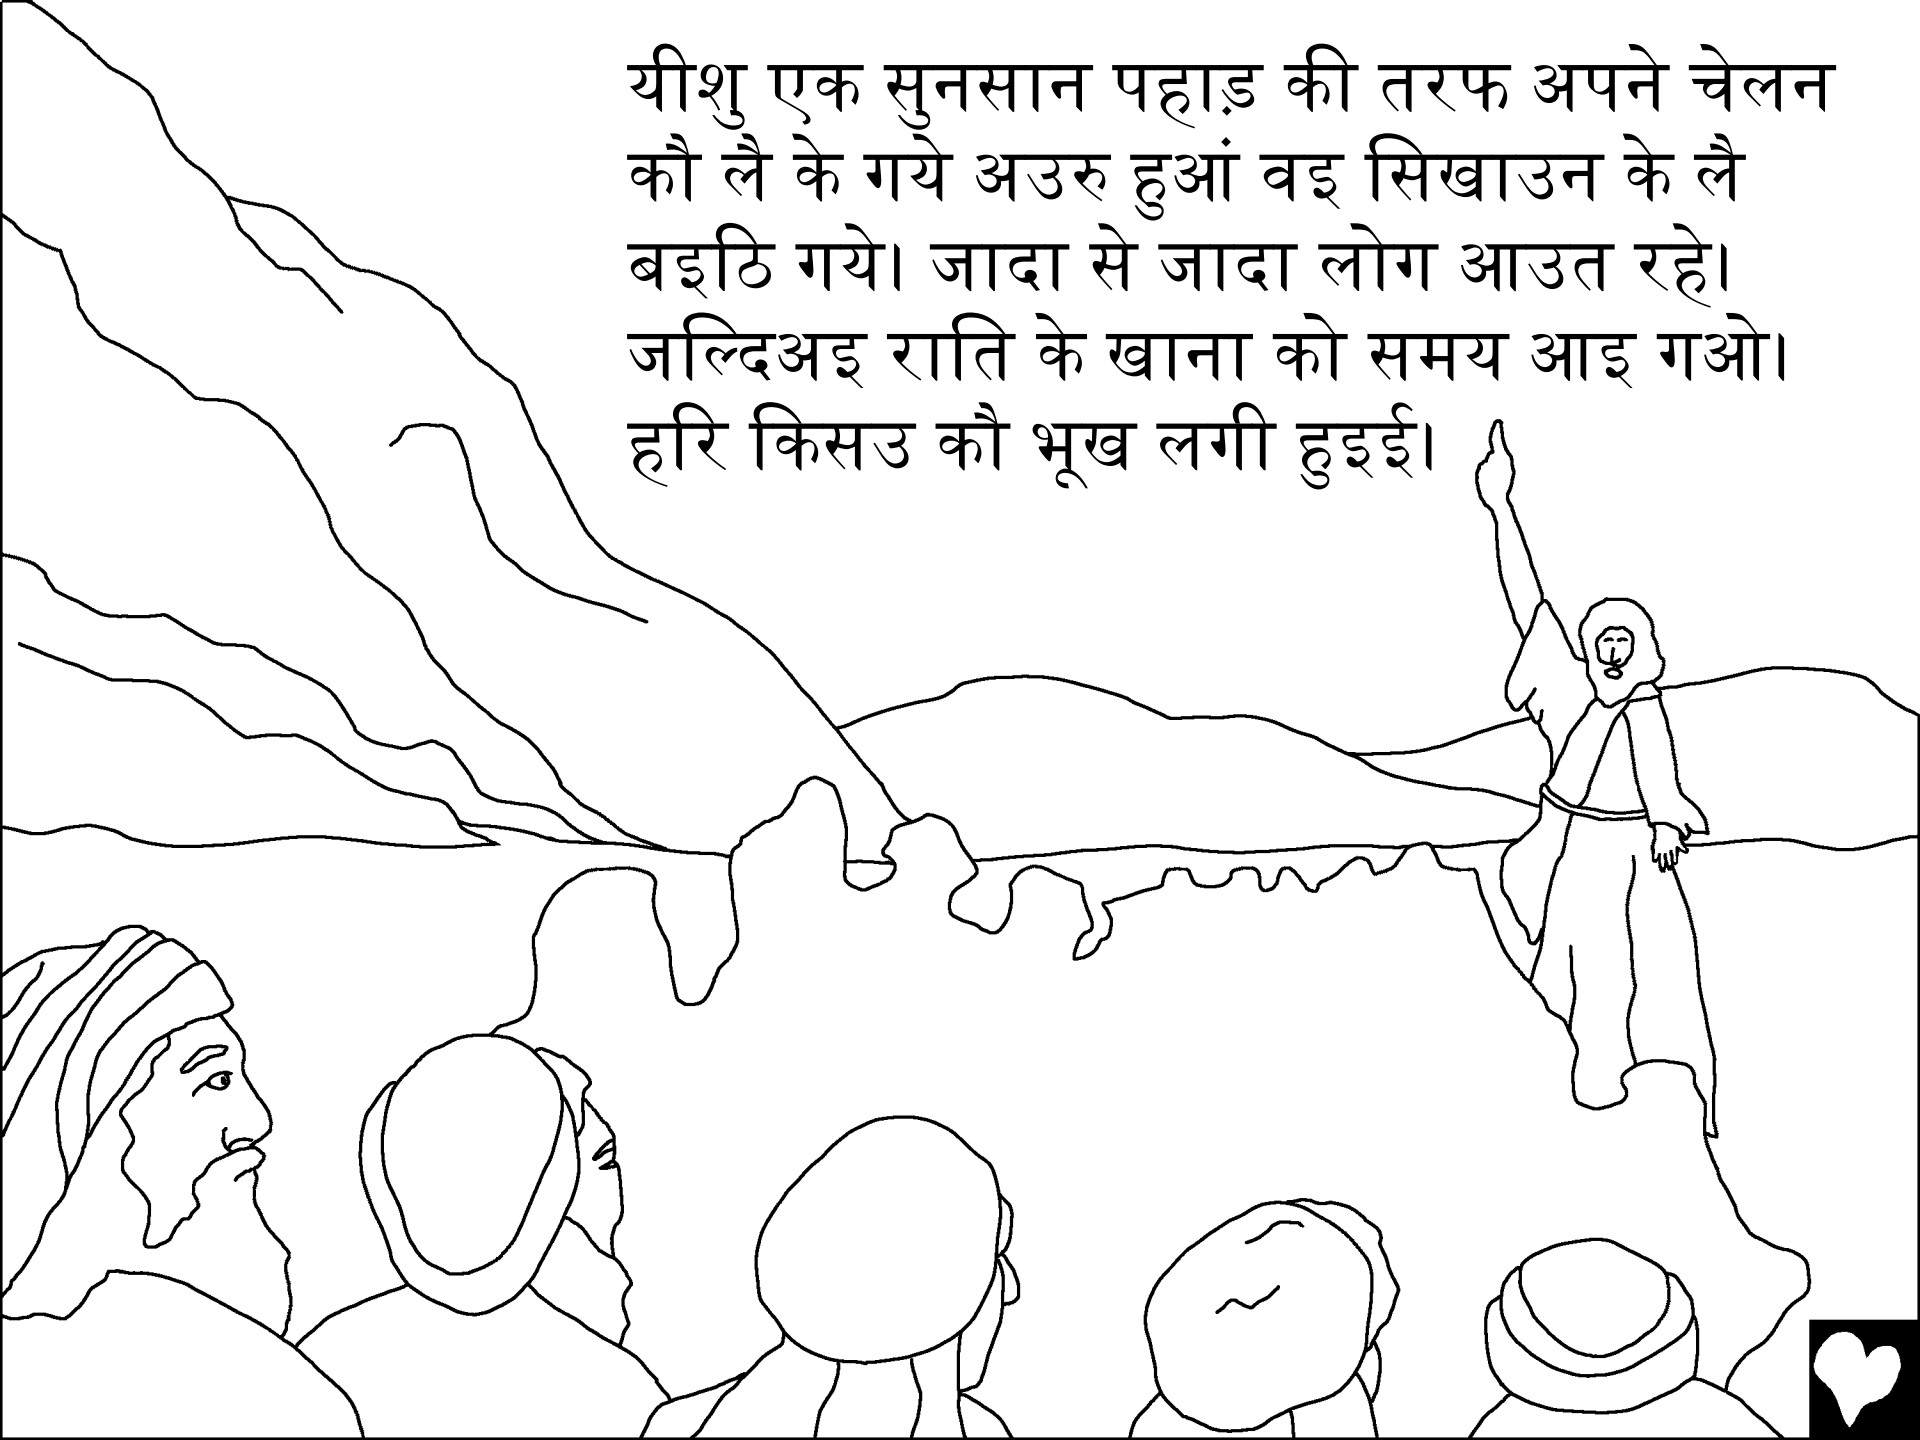 यीशु एक सुनसान पहाड़ की तरफ अपने चेलन
कौ लै के गये अउरु हुआं वइ सिखाउन के लै
बइठि गये। जादा से जादा लोग आउत रहे।
जल्दिअइ राति के खाना को समय आइ गओ।
हरि किसउ कौ भूख लगी हुइई।